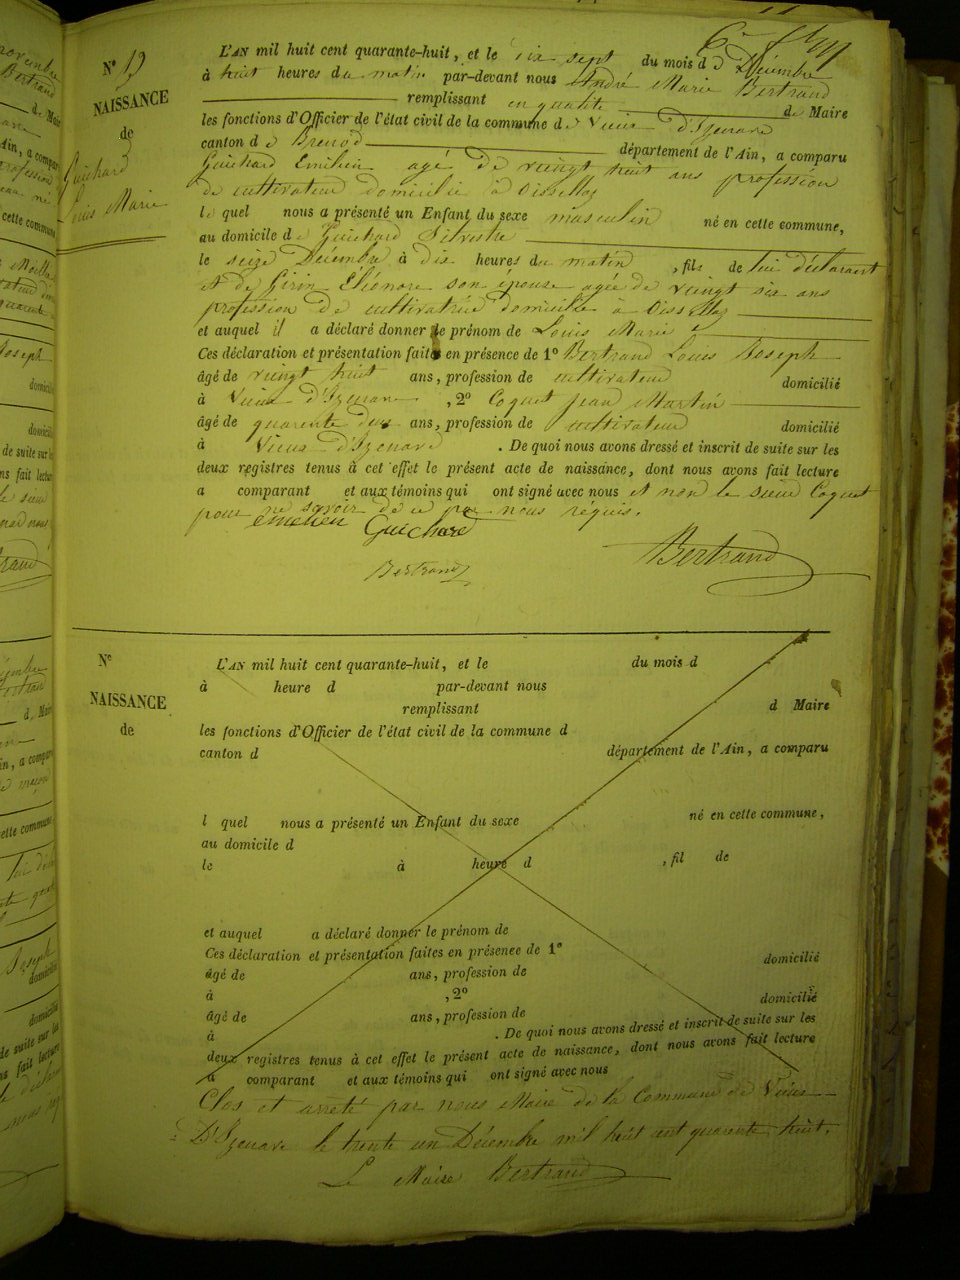 6e f
N° 13
NAISSANCE
de
Guichard
Louis Marie
L'AN mil huit cent quarante-huit, et le dix sept du mois de Décembre
à huit heures du matin par-devant nous André Marie Bertrand
remplissant en qualité de Maire
les fonctions d'Officier de l'état civil de la commune de Vieu d'Izenave
canton de Brenod département de l'Ain, a comparu
Guichard Emilien agé de vingt huit ans profession
de cultivateur domicilié à Oissellaz
le quel nous a présenté un Enfant du sexe masculin né en cette commune,
au domicile de Guichard Silvestre
le seize Décembre à dix heures du matin, fils de lui déclarant
et de Girin Éléonore son épouse agée de vingt six ans
profession de cultivatrice domiciliée à Oissellaz
et auquel il a déclaré donner le prénom de Louis Marie
Ces déclaration et présentation faites en présence de 1° Bertrand Louis Joseph
âgé de vingt huit ans, profession de cultivateur domicilié
à Vieux d'Izenave, 2° Coquet Jean Martin
âgé de quarante deux ans, profession de cultivateur domicilié
à Vieux d'Izenave. De quoi nous avons dressé et inscrit de suite sur les
deux registres tenus à cet effet le présent acte de naissance, dont nous avons fait lecture
a comparant et aux témoins qui ont signé avec nous et non le sieur Coquet
pour ne savoir de ce par nous réquis.
Emilien Guichard
Bertrand
Bertrand
N°
NAISSANCE
de
L'AN mil huit cent quarante-huit, et le du mois d
à heure d par-devant nous
remplissant d Maire
les fonctions d'Officier de l'état civil de la commune d
canton d département de l'Ain, a comparu
l quel nous a présenté un Enfant du sexe né en cette commune,
au domicile d
le à heure d , fil de
et auquel a déclaré donner le prénom de
Ces déclaration et présentation faites en présence de 1°
âgé de ans, profession de domicilié
à , 2°
âgé de ans, profession de domicilié
à . De quoi nous avons dressé et inscrit de suite sur les
deux registres tenus à cet effet le présent acte de naissance, dont nous avons fait lecture
a comparant et aux témoins qui ont signé avec nous
Clos et arrêté par nous Maire de la Commune de Vieu
D'Izenave le trente un Décembre mil huit cent quarante huit.
Le Maire Bertrand